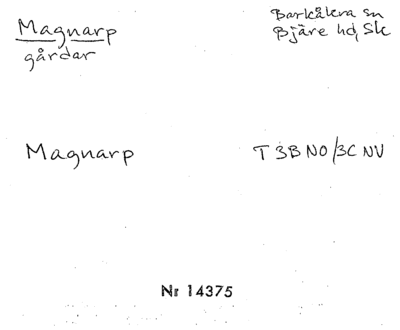 Magnarp
gårdar
Barkåkra sn
Bjäre hd, Sk
Magnarp
T 3B NO/3C NV
Nr 14375